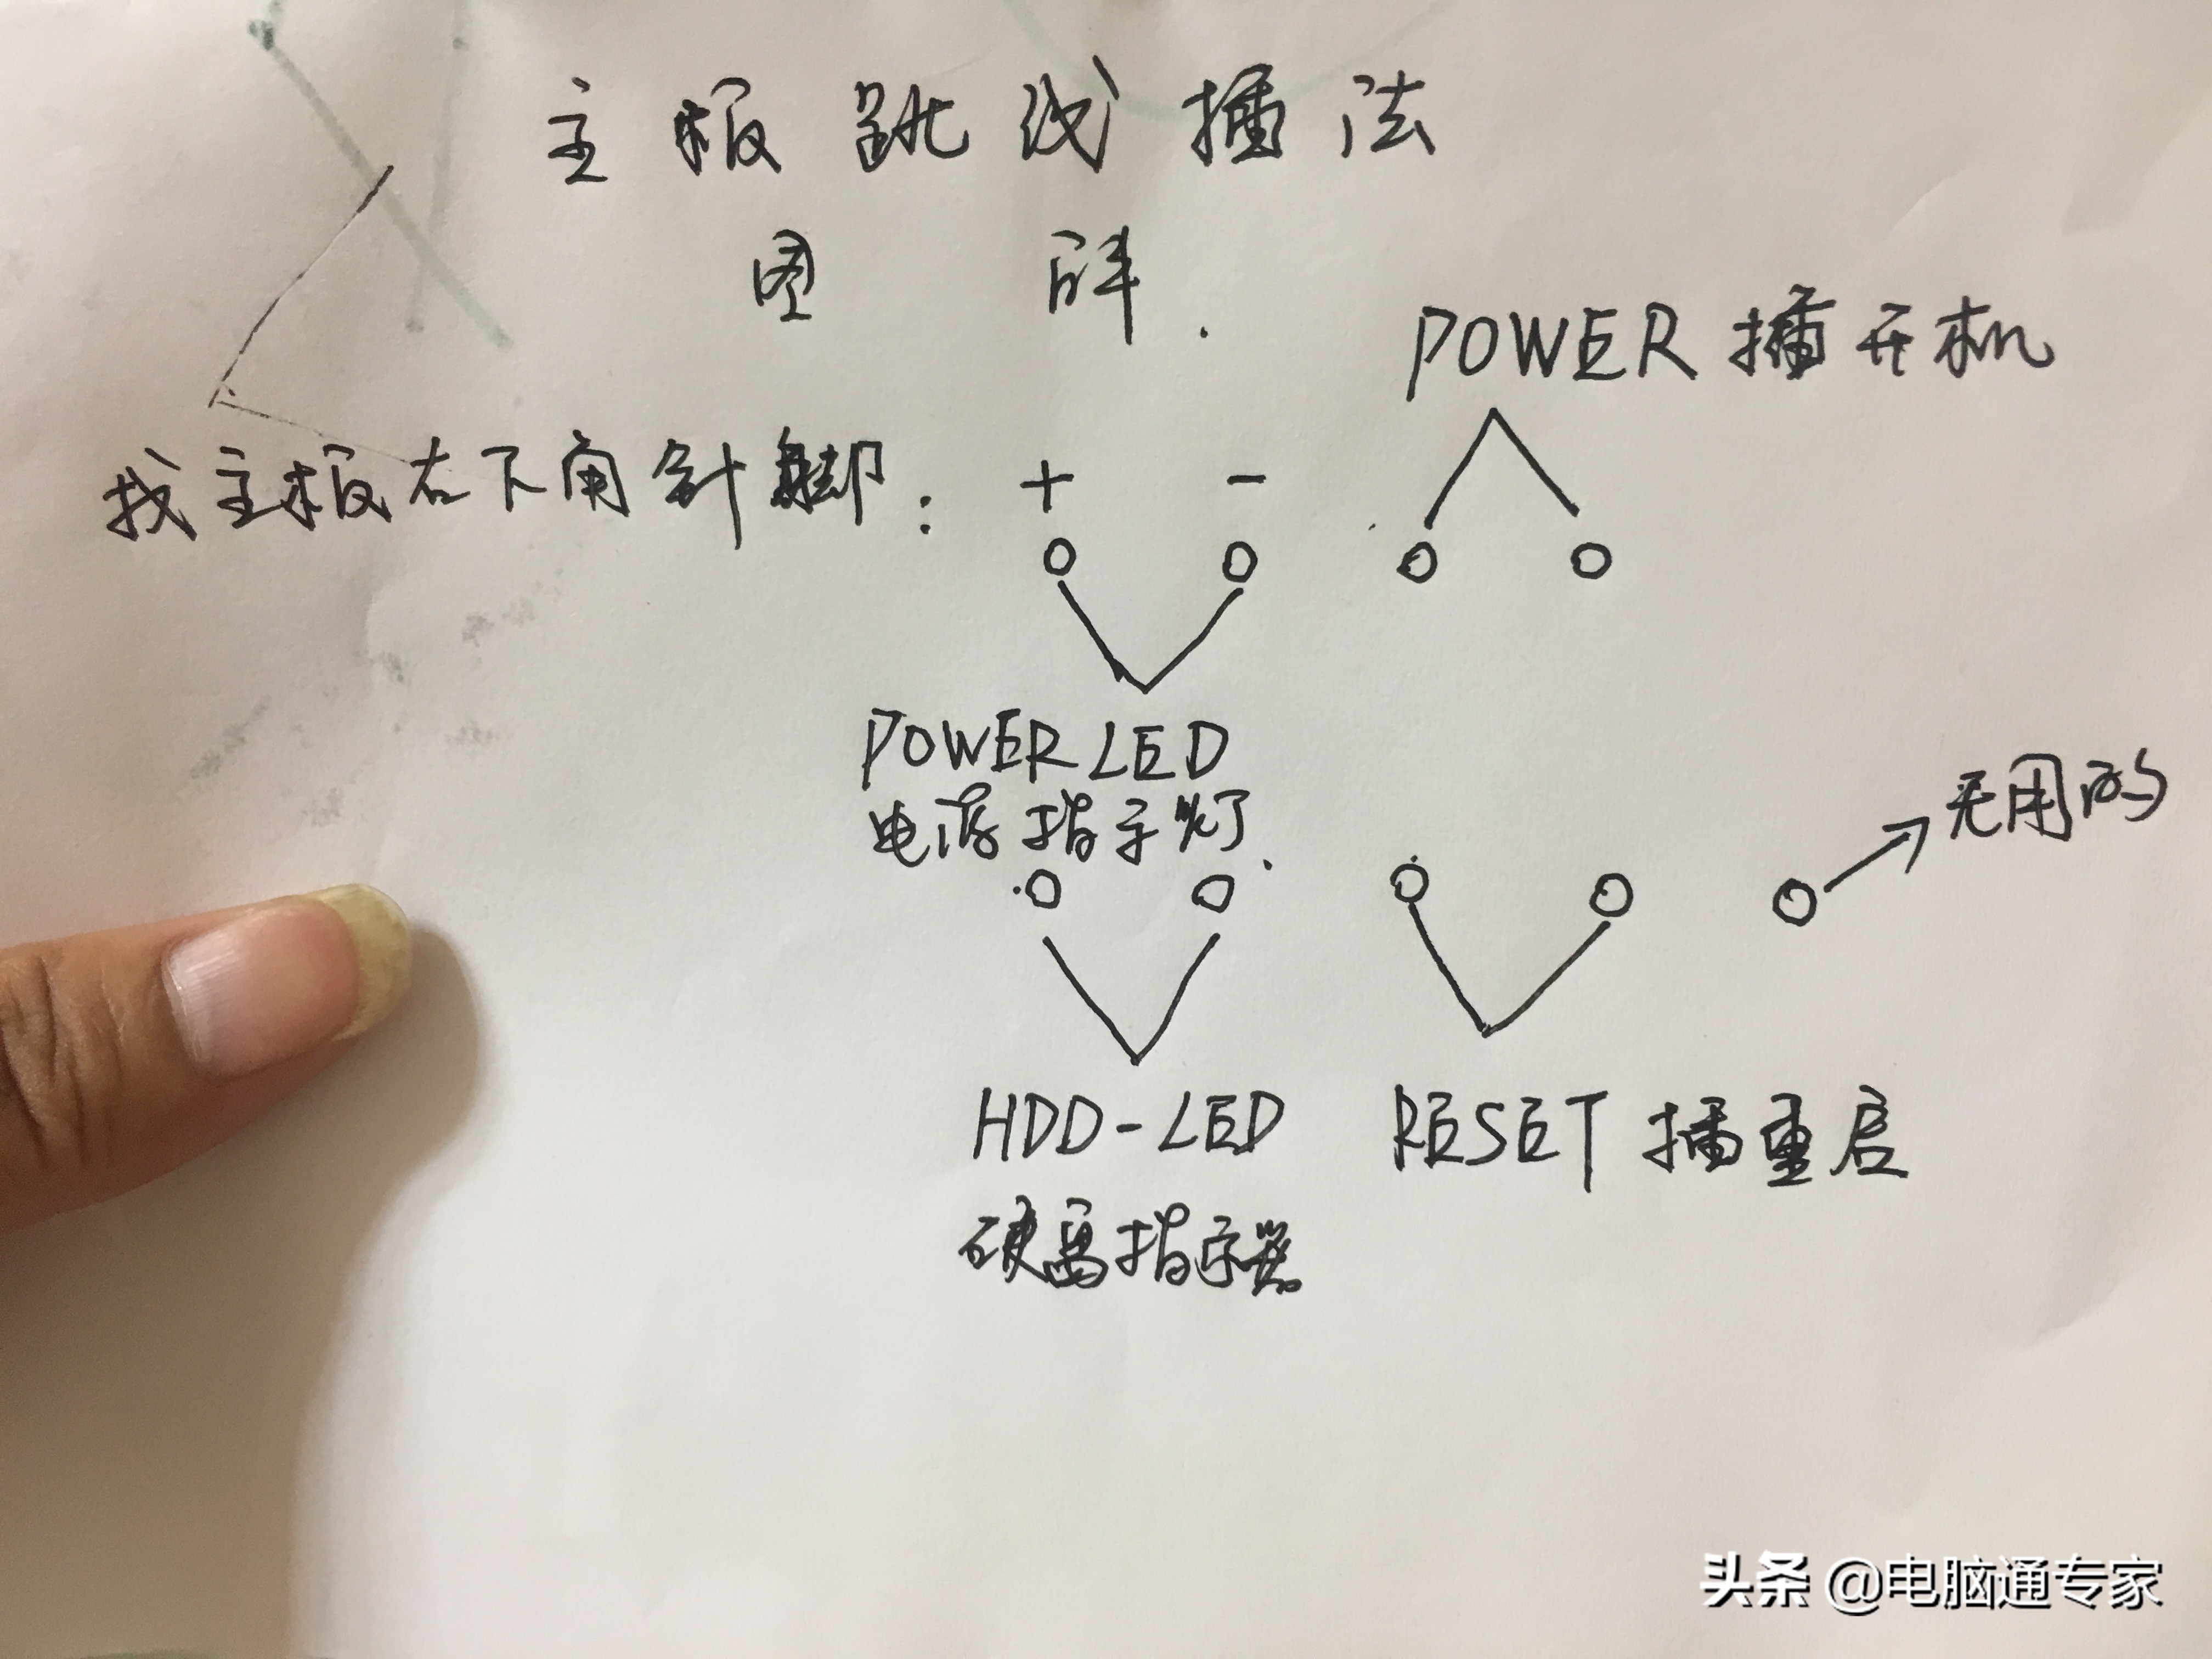 主板跳线插法
图解.
POWER 插开机
找主板右下角针脚: + -
POWER LED
电源指示灯.
无用的
HDD-LED
RESET 插重启
硬盘指示器
头条 @电脑通专家